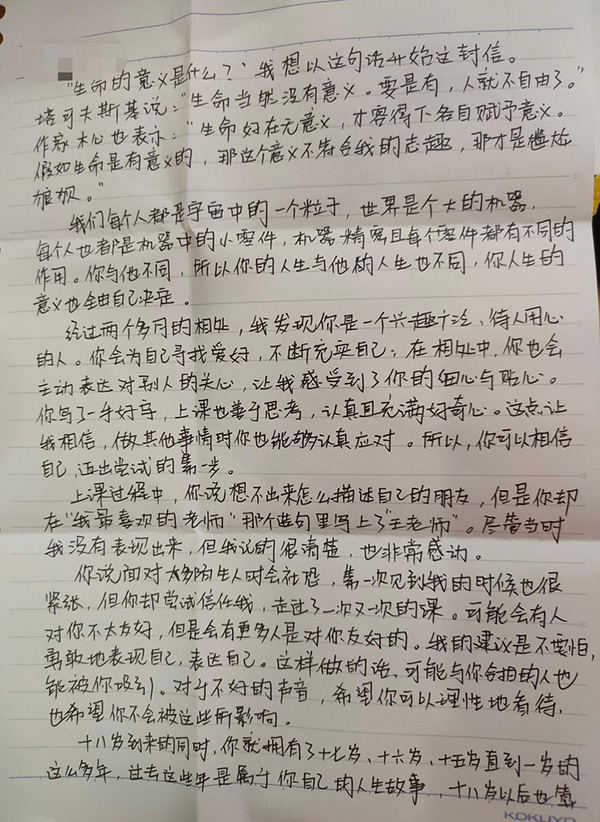 “生命的意义是什么？”我想以这句话开始这封信。
塔可夫斯基说：“生命当然没有意义。要是有，人就不自由了。”
作家木心也表示：“生命好在无意义，才容得下各自赋予意义。
假如生命是有意义的，那这个意义不符合我的志趣，那才是尴尬
狼狈。”
我们每个人都是宇宙中的一个粒子，世界是个大的机器，
每个人也都是机器中的小零件，机器精密且每个零件都有不同的
作用。你与他不同，所以你的人生与他的人生也不同，你人生的
意义也全由自己决定。
经过两个多月的相处，我发现你是一个兴趣广泛、待人用心
的人。你会为自己寻找爱好，不断充实自己；在相处中，你也会
主动表达对别人的关心，让我感受到了你的细心与贴心。
你写了一手好字，上课也善于思考，认真且充满好奇心。这点让
我相信，做其他事情时你也能够认真应对。所以，你可以相信
自己，迈出尝试的第一步。
上课过程中，你说想不出来怎么描述自己的朋友，但是你却
在“我最喜欢的老师”那个造句里写上了“王老师”。尽管当时
我没有表现出来，但我记的很清楚，也非常感动。
你说面对太多陌生人时会社恐，第一次见到我的时候也很
紧张，但你却尝试信任我，走过了一次又一次的课。可能会有人
对你不太友好，但是会有更多人是对你友好的。我的建议是不要怕，
勇敢地表现自己，表达自己。这样做的话，可能与你合拍的人也
能被你吸引。对于不好的声音，希望你可以理性地看待，
也希望你不会被这些所影响。
十八岁到来的同时，你就拥有了十七岁、十六岁、十五岁直到一岁的
这么多年，过去这些年是属于你自己的人生故事，十八岁以后也靠
KOKUYO